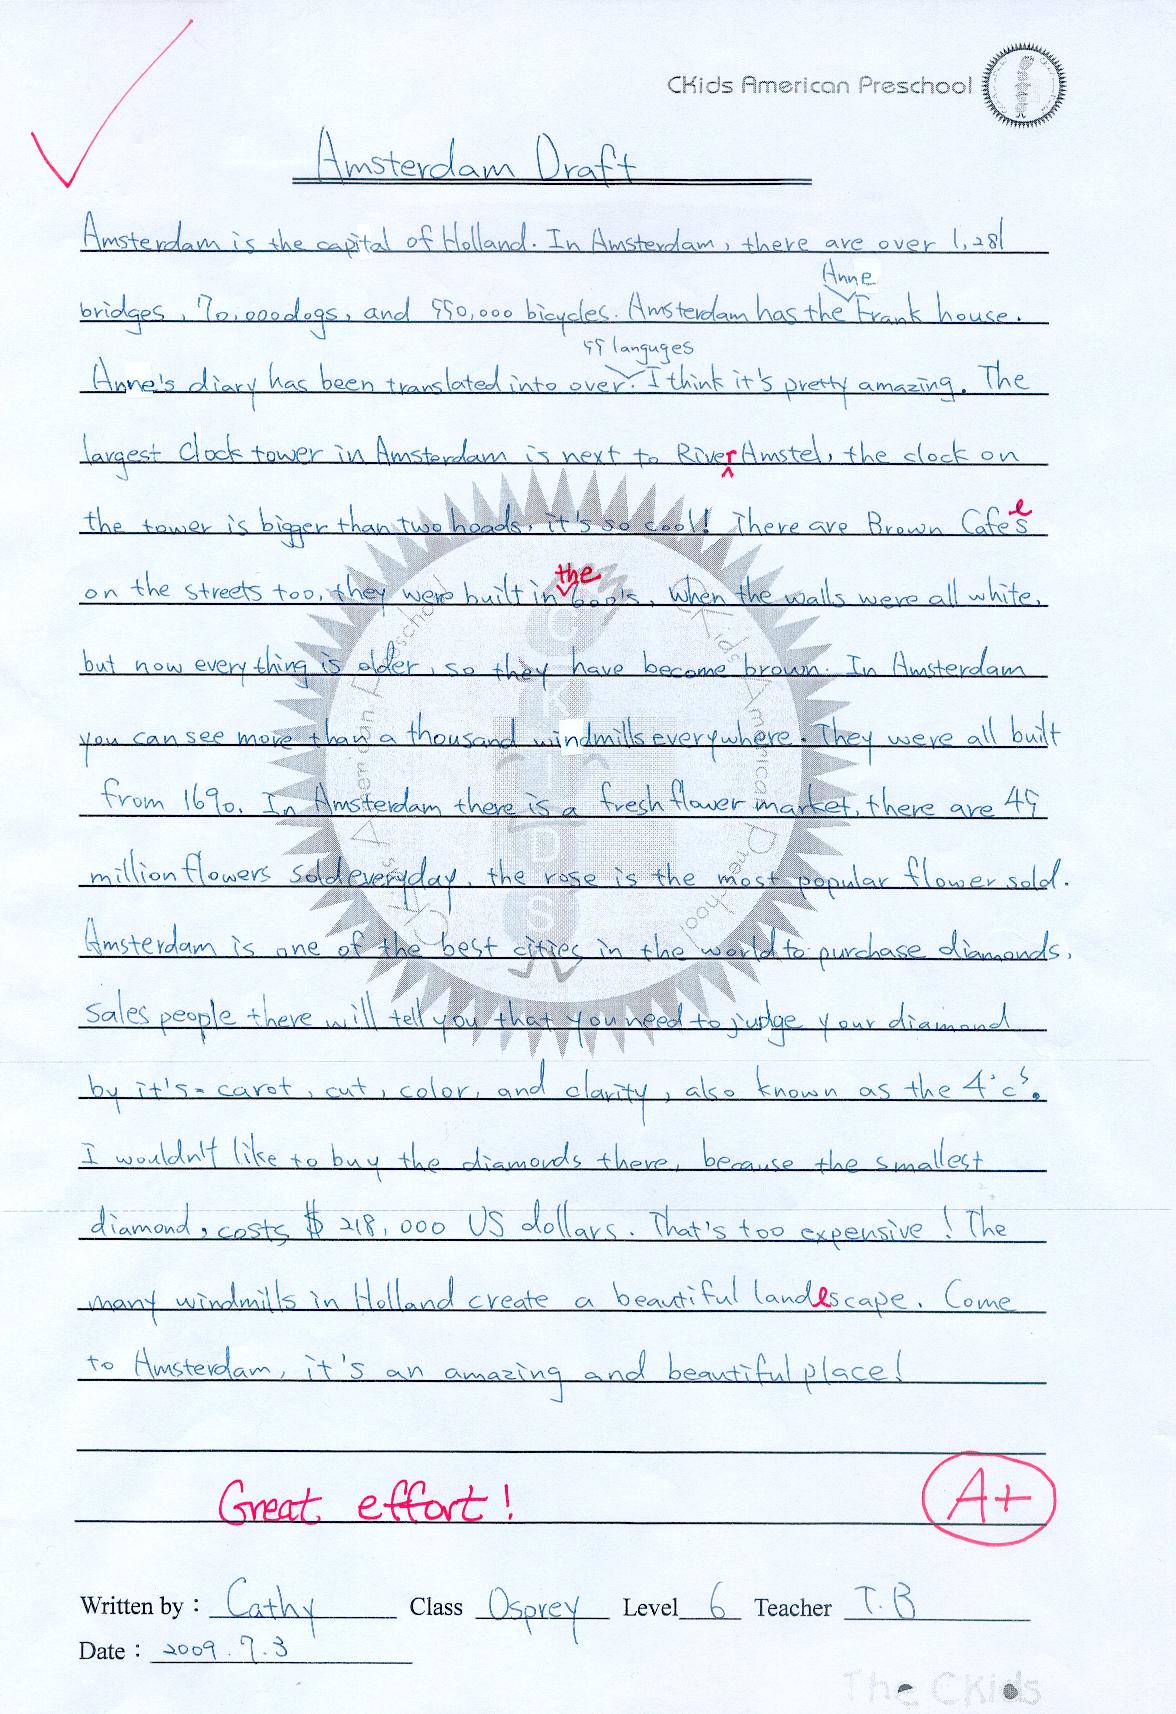 CKids American Preschool
Amsterdam Draft
Amsterdam is the capital of Holland. In Amsterdam, there are over 1,281
Anne
bridges, 70,000 dogs, and 550,000 bicycles. Amsterdam has the Frank house.
55 languges
Anne's diary has been translated into over. I think it's pretty amazing. The
largest clock tower in Amsterdam is next to River Amstel, the clock on
the tower is bigger than two heads, it's so cool! There are Brown Cafe's
the
on the streets too, they were built in 600's, when the walls were all white,
but now everything is older, so they have become brown. In Amsterdam
you can see more than a thousand windmills everywhere. They were all built
from 1690. In Amsterdam there is a fresh flower market, there are 45
million flowers sold everyday, the rose is the most popular flower sold.
Amsterdam is one of the best cities in the world to purchase diamonds,
sales people there will tell you that you need to judge your diamond
by it's = carot, cut, color, and clarity, also known as the 4'c's.
I wouldn't like to buy the diamonds there, because the smallest
diamond, costs $ 218,000 US dollars. That's too expensive! The
many windmills in Holland create a beautiful landescape. Come
to Amsterdam, it's an amazing and beautiful place!
Great effort! A+
Written by : Cathy Class Osprey Level 6 Teacher T.B
Date : 2009.7.3
The CKids